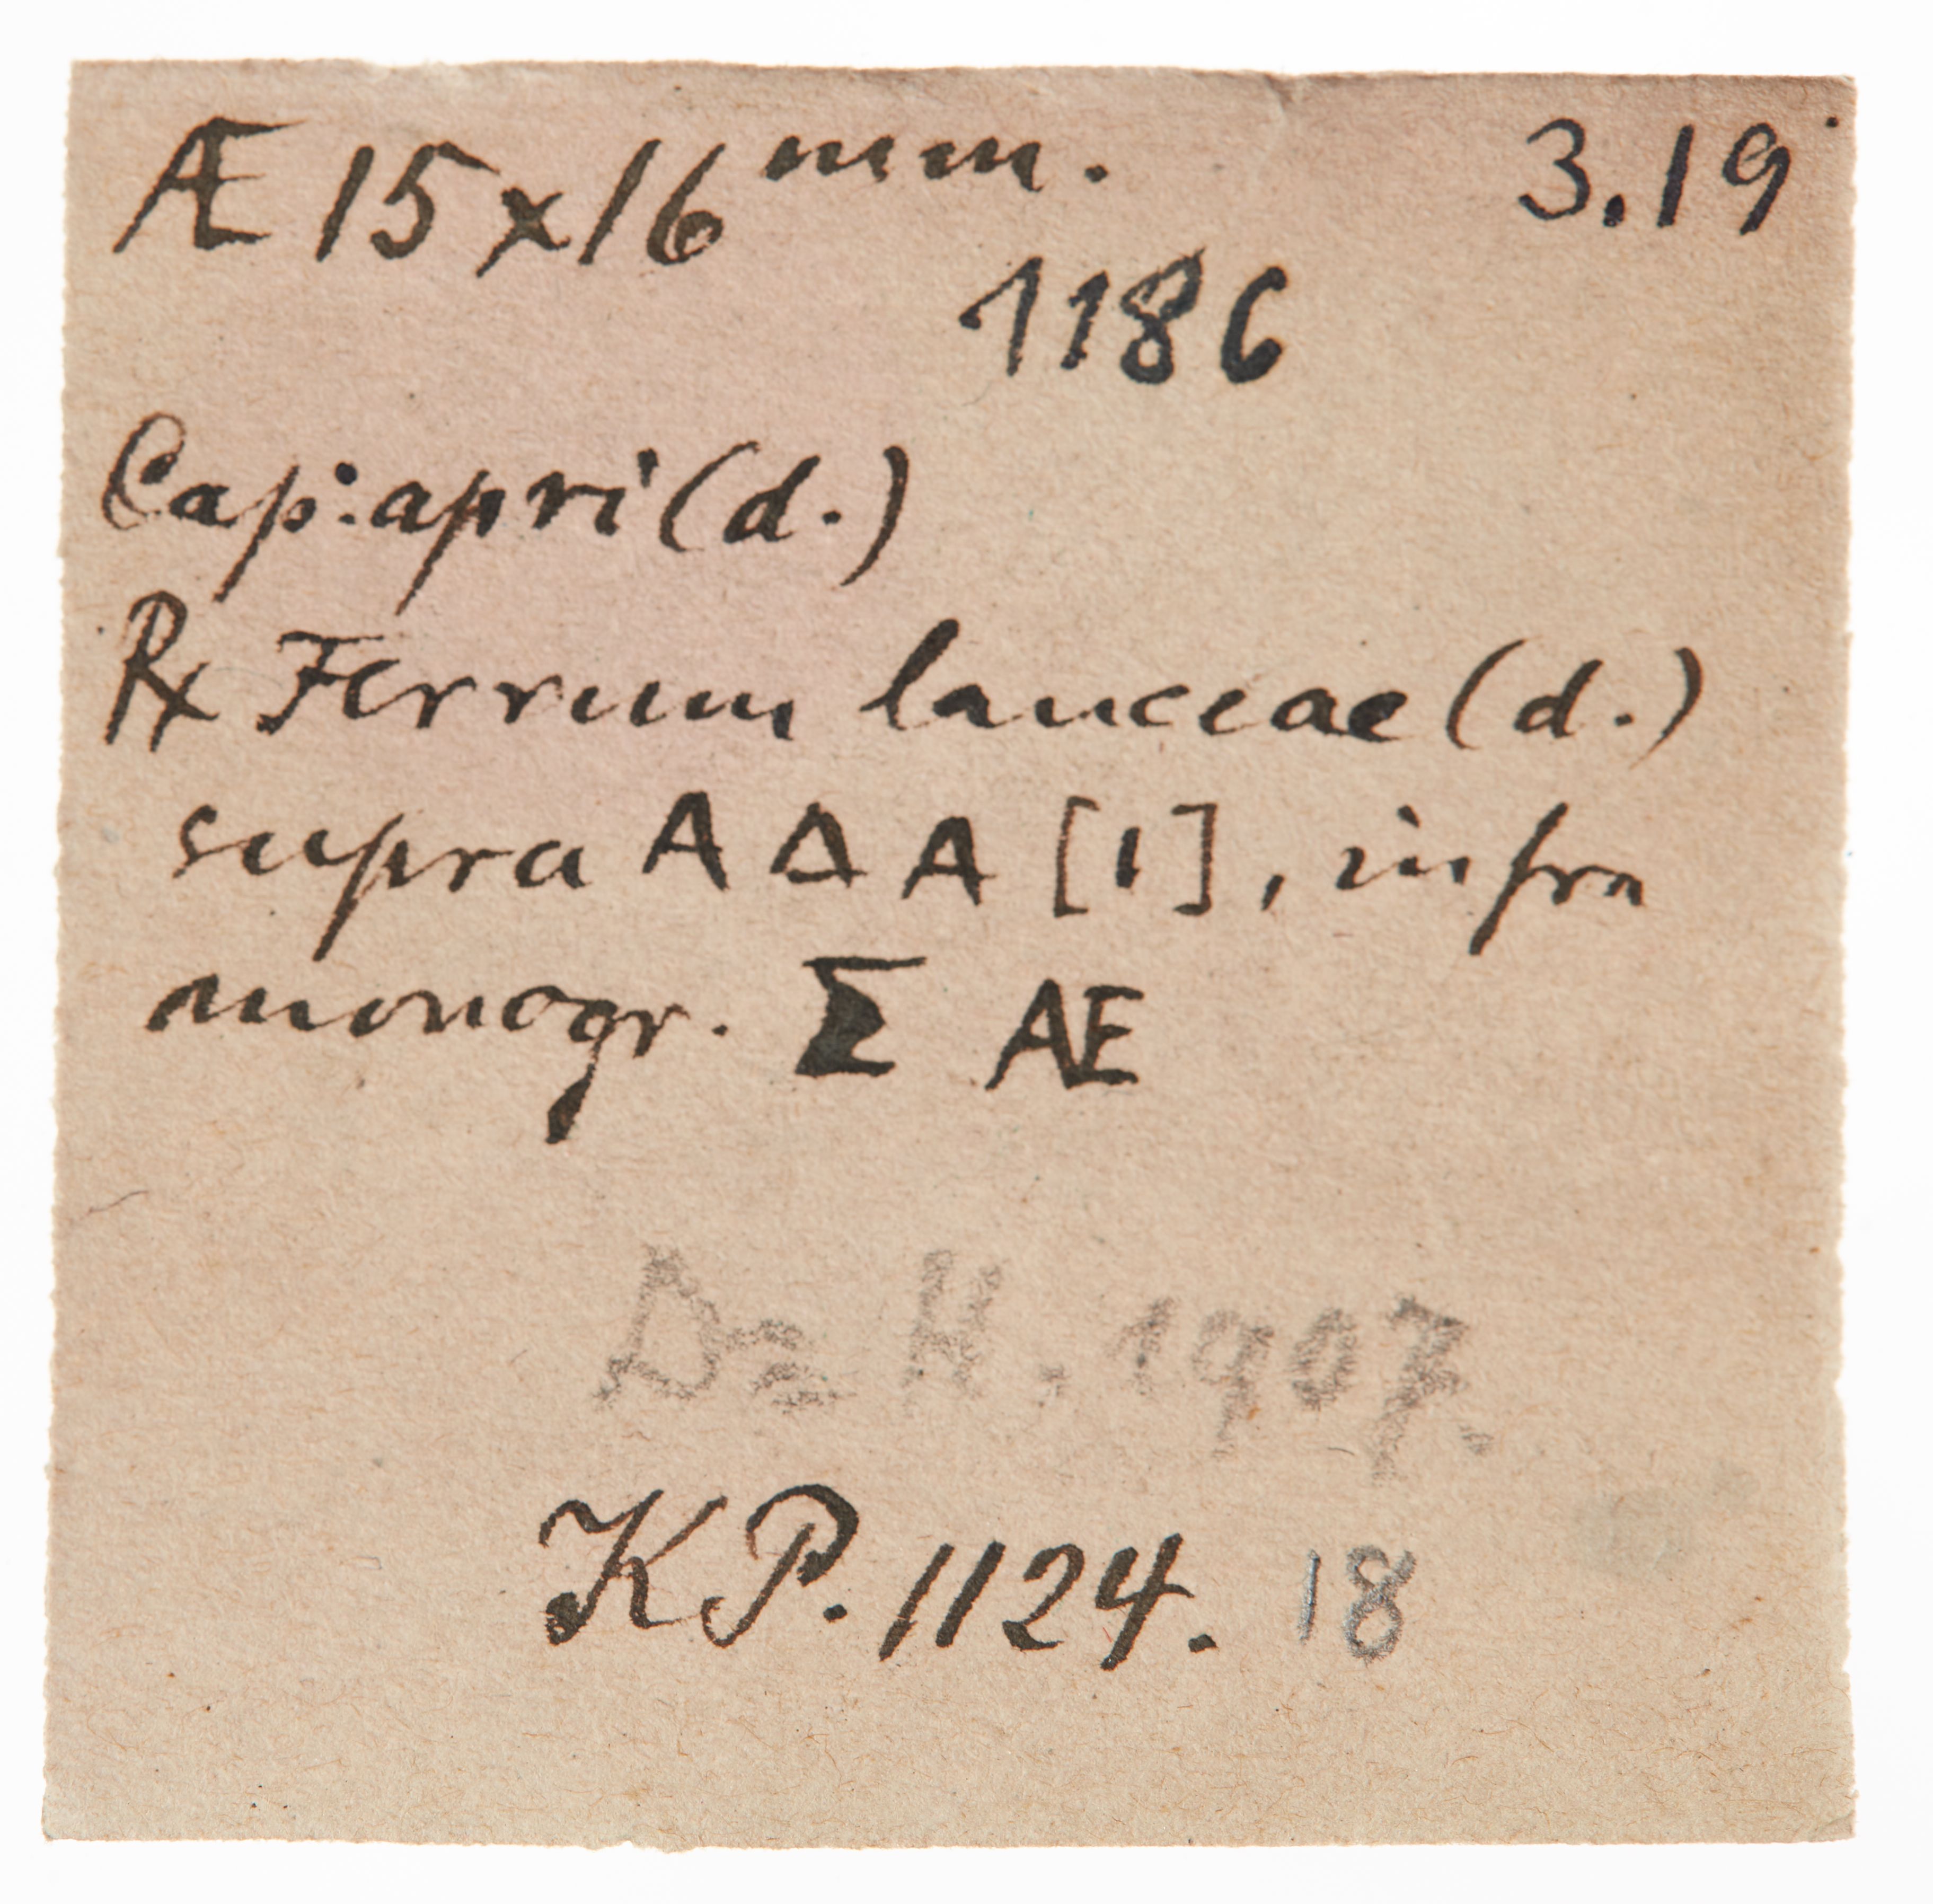 Æ 15 x 16 mm. 3.19
1186
Cap: apri (d.)
℞ Ferrum lanceae (d.)
supra Α Δ Α [Ι], infra
monogr. Σ ΑΕ
H. 1907.
KP. 1124. 18